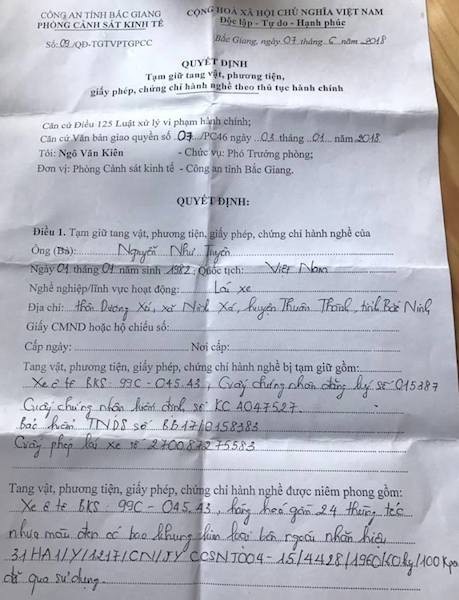 CÔNG AN TỈNH BẮC GIANG
PHÒNG CẢNH SÁT KINH TẾ
Số: 09/QĐ-TGTVPTGPCC
CỘNG HOÀ XÃ HỘI CHỦ NGHĨA VIỆT NAM
Độc lập - Tự do - Hạnh phúc
Bắc Giang, ngày 07 tháng 6 năm 2018
QUYẾT ĐỊNH
Tạm giữ tang vật, phương tiện,
giấy phép, chứng chỉ hành nghề theo thủ tục hành chính
Căn cứ Điều 125 Luật xử lý vi phạm hành chính;
Căn cứ Văn bản giao quyền số 07 /PC46 ngày 03 tháng 01 năm 2018
Tôi: Ngô Văn Kiên - Chức vụ: Phó Trưởng phòng;
Đơn vị: Phòng Cảnh sát kinh tế - Công an tỉnh Bắc Giang.
QUYẾT ĐỊNH:
Điều 1. Tạm giữ tang vật, phương tiện, giấy phép, chứng chỉ hành nghề của
Ông (Bà): Nguyễn Như
Ngày 01 tháng 01 năm sinh 1982; Quốc tịch: Việt Nam
Nghề nghiệp/lĩnh vực hoạt động: Lái xe
Địa chỉ: thôn Dương Xá, xã Ninh Xá, huyện Thuận Thành, tỉnh Bắc Ninh
Giấy CMND hoặc hộ chiếu số:
Cấp ngày: Nơi cấp:
Tang vật, phương tiện, giấy phép, chứng chỉ hành nghề bị tạm giữ gồm:
Xe ô tô BKS: 99C - 045.43, Giấy chứng nhận đăng ký số 015387
Giấy chứng nhận kiểm định số KC 4047527
Bảo hiểm TNDS số BB17/0158383
Giấy phép lái xe số 270087275583
Tang vật, phương tiện, giấy phép, chứng chỉ hành nghề được niêm phong gồm:
Xe ô tô BKS: 99C - 045.43, hàng hóa gồm 24 thùng téc
nhựa màu đen có bao khung kim loại bên ngoài nhãn hiệu
31HA1/Y/1217/CN/JY CCSNJ004-15/4428/1960/KO kg/100 Kpa
đã qua sử dụng.